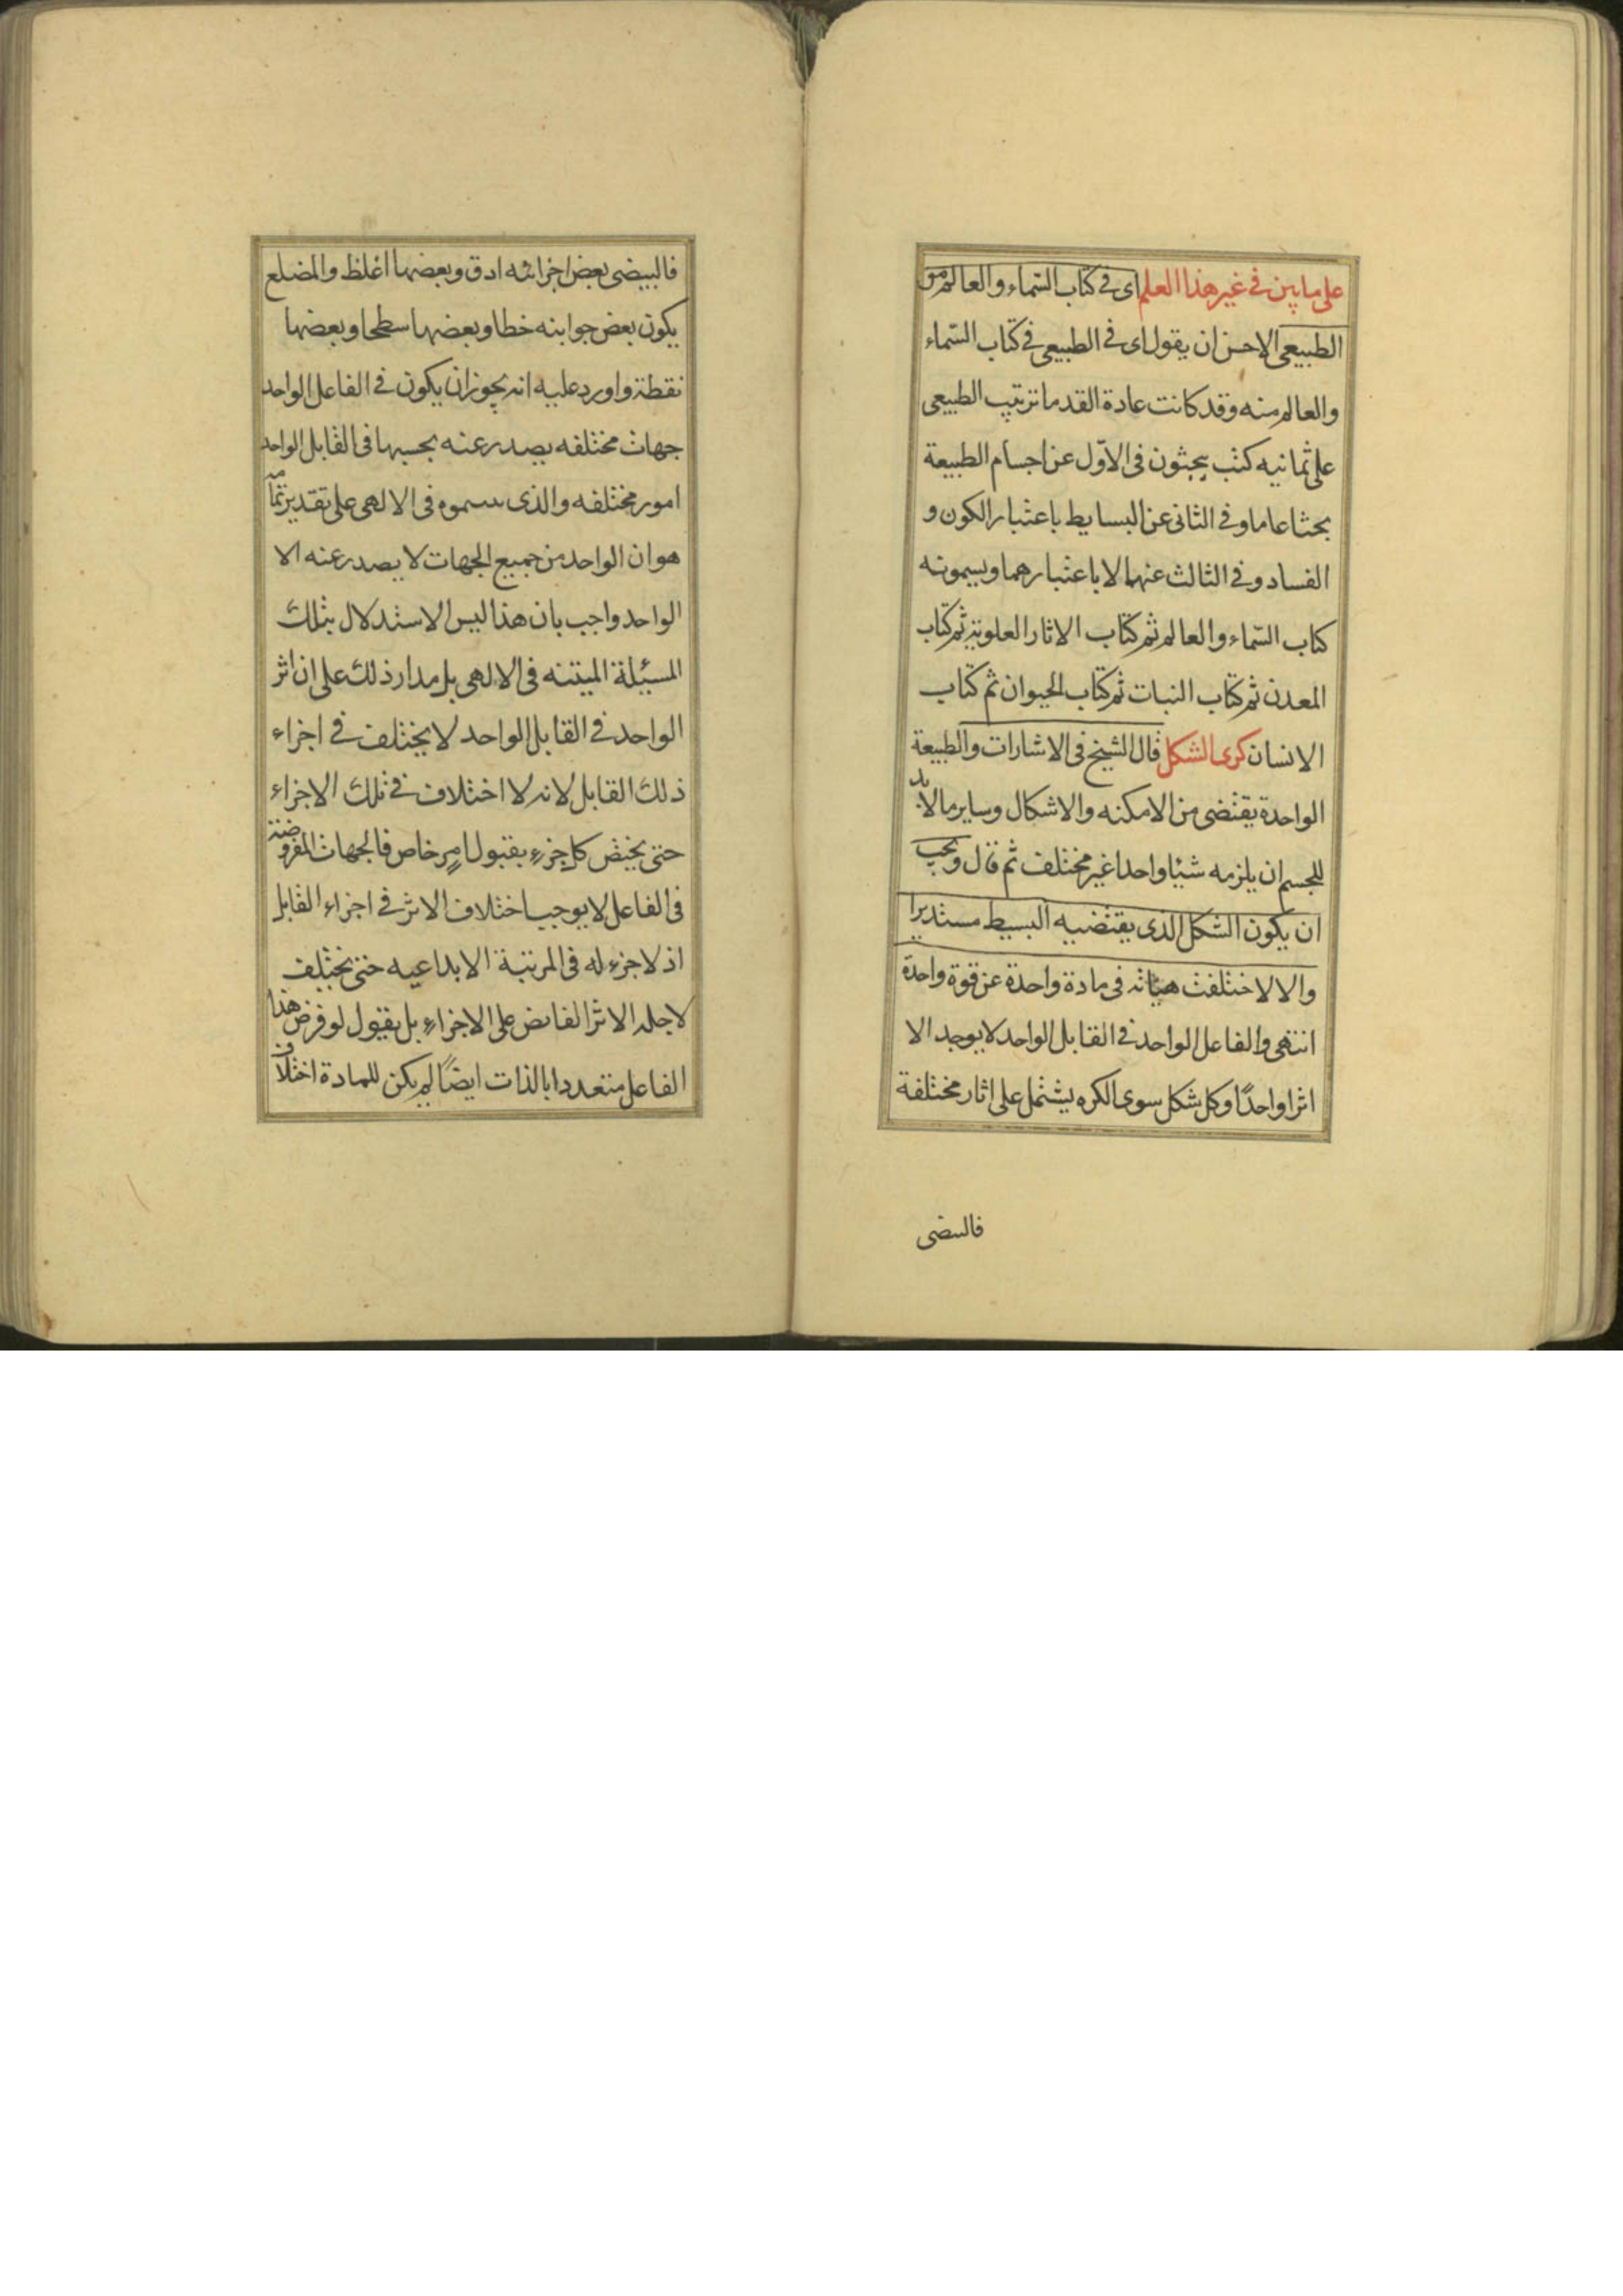 على ما بين في غير هذا العلم اى في كتاب السّماء والعالم من
الطبيعي الاحسن ان يقول اى في الطبيعي في كتاب السّماء
والعالم منه وقد كانت عادة القدما ترتيب الطبيعى
على ثمانيه كتب يبحثون في الاوّل عن اجسام الطبيعة
بحثا عاما وفي الثانى عن البسايط باعتبار الكون و
الفساد وفي الثالث عنهما لا باعتبارهما ويسمونه
كتاب السّماء والعالم ثم كتاب الاثار العلوية ثم كتاب
المعدن ثم كتاب النبات ثم كتاب الحيوان ثم كتاب
الانسان كرى الشكل قال الشيخ في الاشارات والطبيعة
الواحدة يقتضى من الامكنه والاشكال وساير ما لا بد
للجسم ان يلزمه شيئا واحدا غير مختلف ثم قال ويجب
ان يكون الشكل الذى يقتضيه البسيط مستديرا
والا لاختلفت هيئاته في مادة واحدة عن قوة واحدة
انتهى والفاعل الواحد في القابل الواحد لا يوجد الا
اثرا واحدًا وكل شكل سوى الكره يشتمل على اثار مختلفة
فالسضى
فالبيضى بعض اجزائه ادق وبعضها اغلظ والمضلع
يكون بعض جوابنه خطا وبعضها سطحا وبعضها
نقطة واورد عليه انه يجوز ان يكون في الفاعل الواحد
جهات مختلفه يصدر عنه بحسبها في القابل الواحد
امور مختلفه والذى سموه في الالهى على تقدير تمامه
هو ان الواحد من جميع الجهات لا يصدر عنه الا
الواحد واجب بان هذا ليس الاستدلال بتلك
المسيئلة المبتنه في الالهى بل مدار ذلك على ان اثر
الواحد في القابل الواحد لا يختلف في اجزاء
ذلك القابل لانه لا اختلاف في تلك الاجزاء
حتى يختص كل جزء بقبول امر خاص فالجهات المفروضة
في الفاعل لا يوجب اختلاف الاثر في اجزاء القابل
اذ لا جزء له في المرتبة الابداعيه حتى يختلف
لاجله الاثر الفائض على الاجزاء بل يقول لو فرض هذا
الفاعل متعددا بالذات ايضًا لم يكن للمادة اختلاف